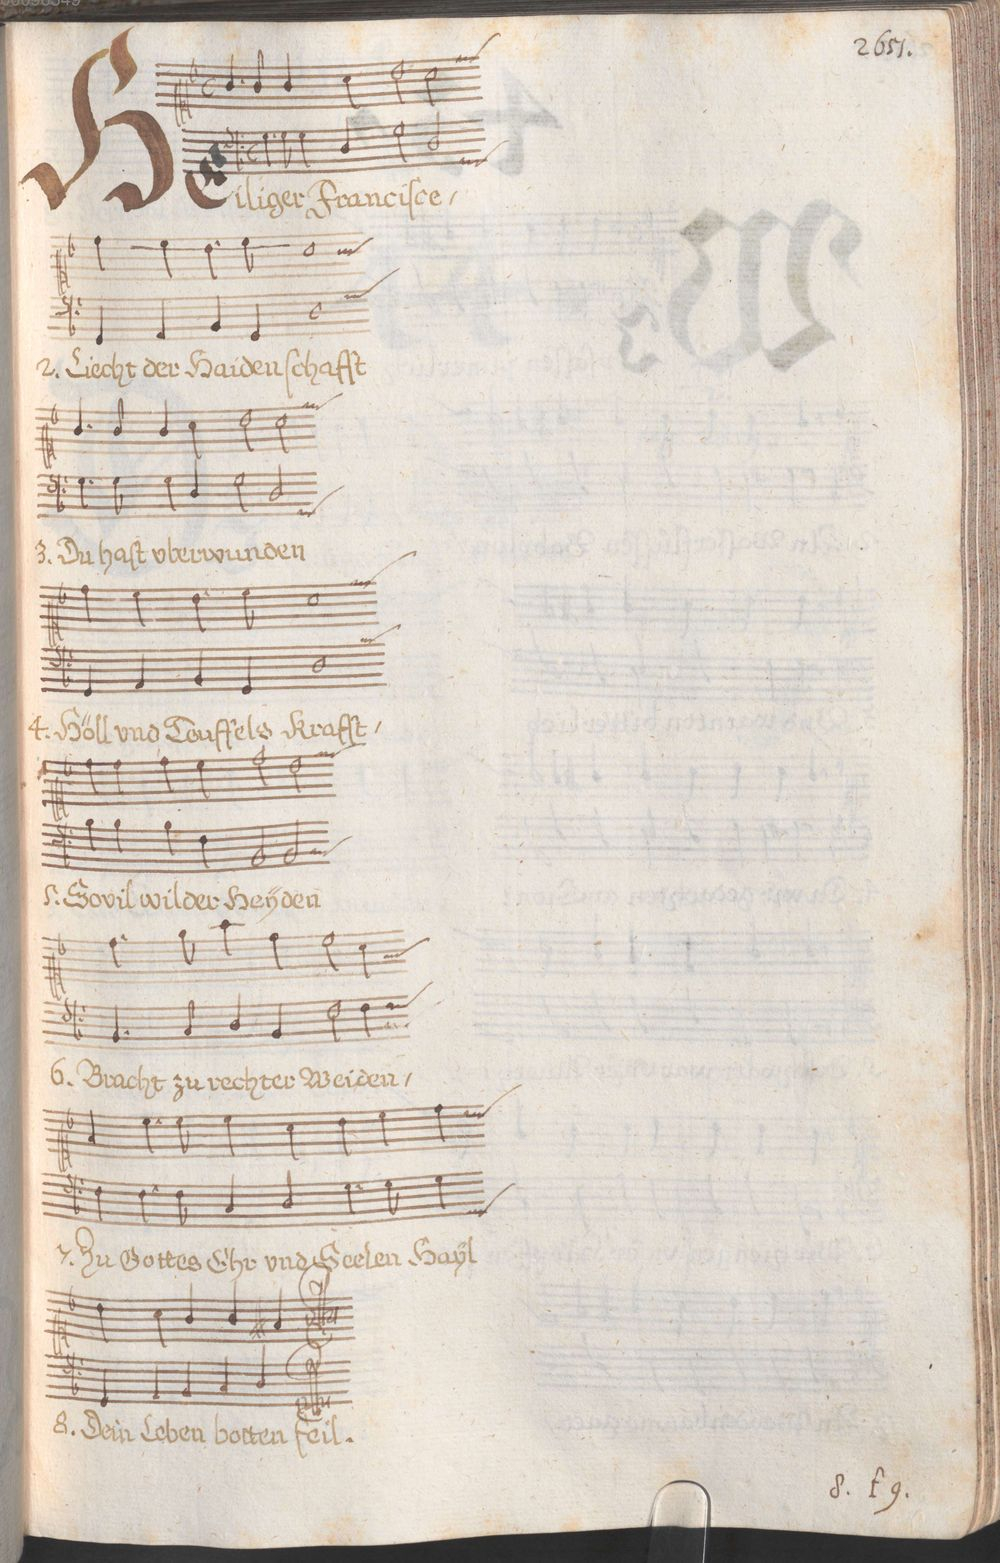 2651.
Heiliger Francisce/
2. Liecht der Haidenschafft
3. Du hast vberwunden
4. Höll vnd Teuffels Krafft/
5. Sovil wilder Heÿden
6. Bracht zu rechter Weiden/
7. Zu Gottes Ehr vnd Seelen Haÿl
8. Dein Leben botten feil.
8. f 9.